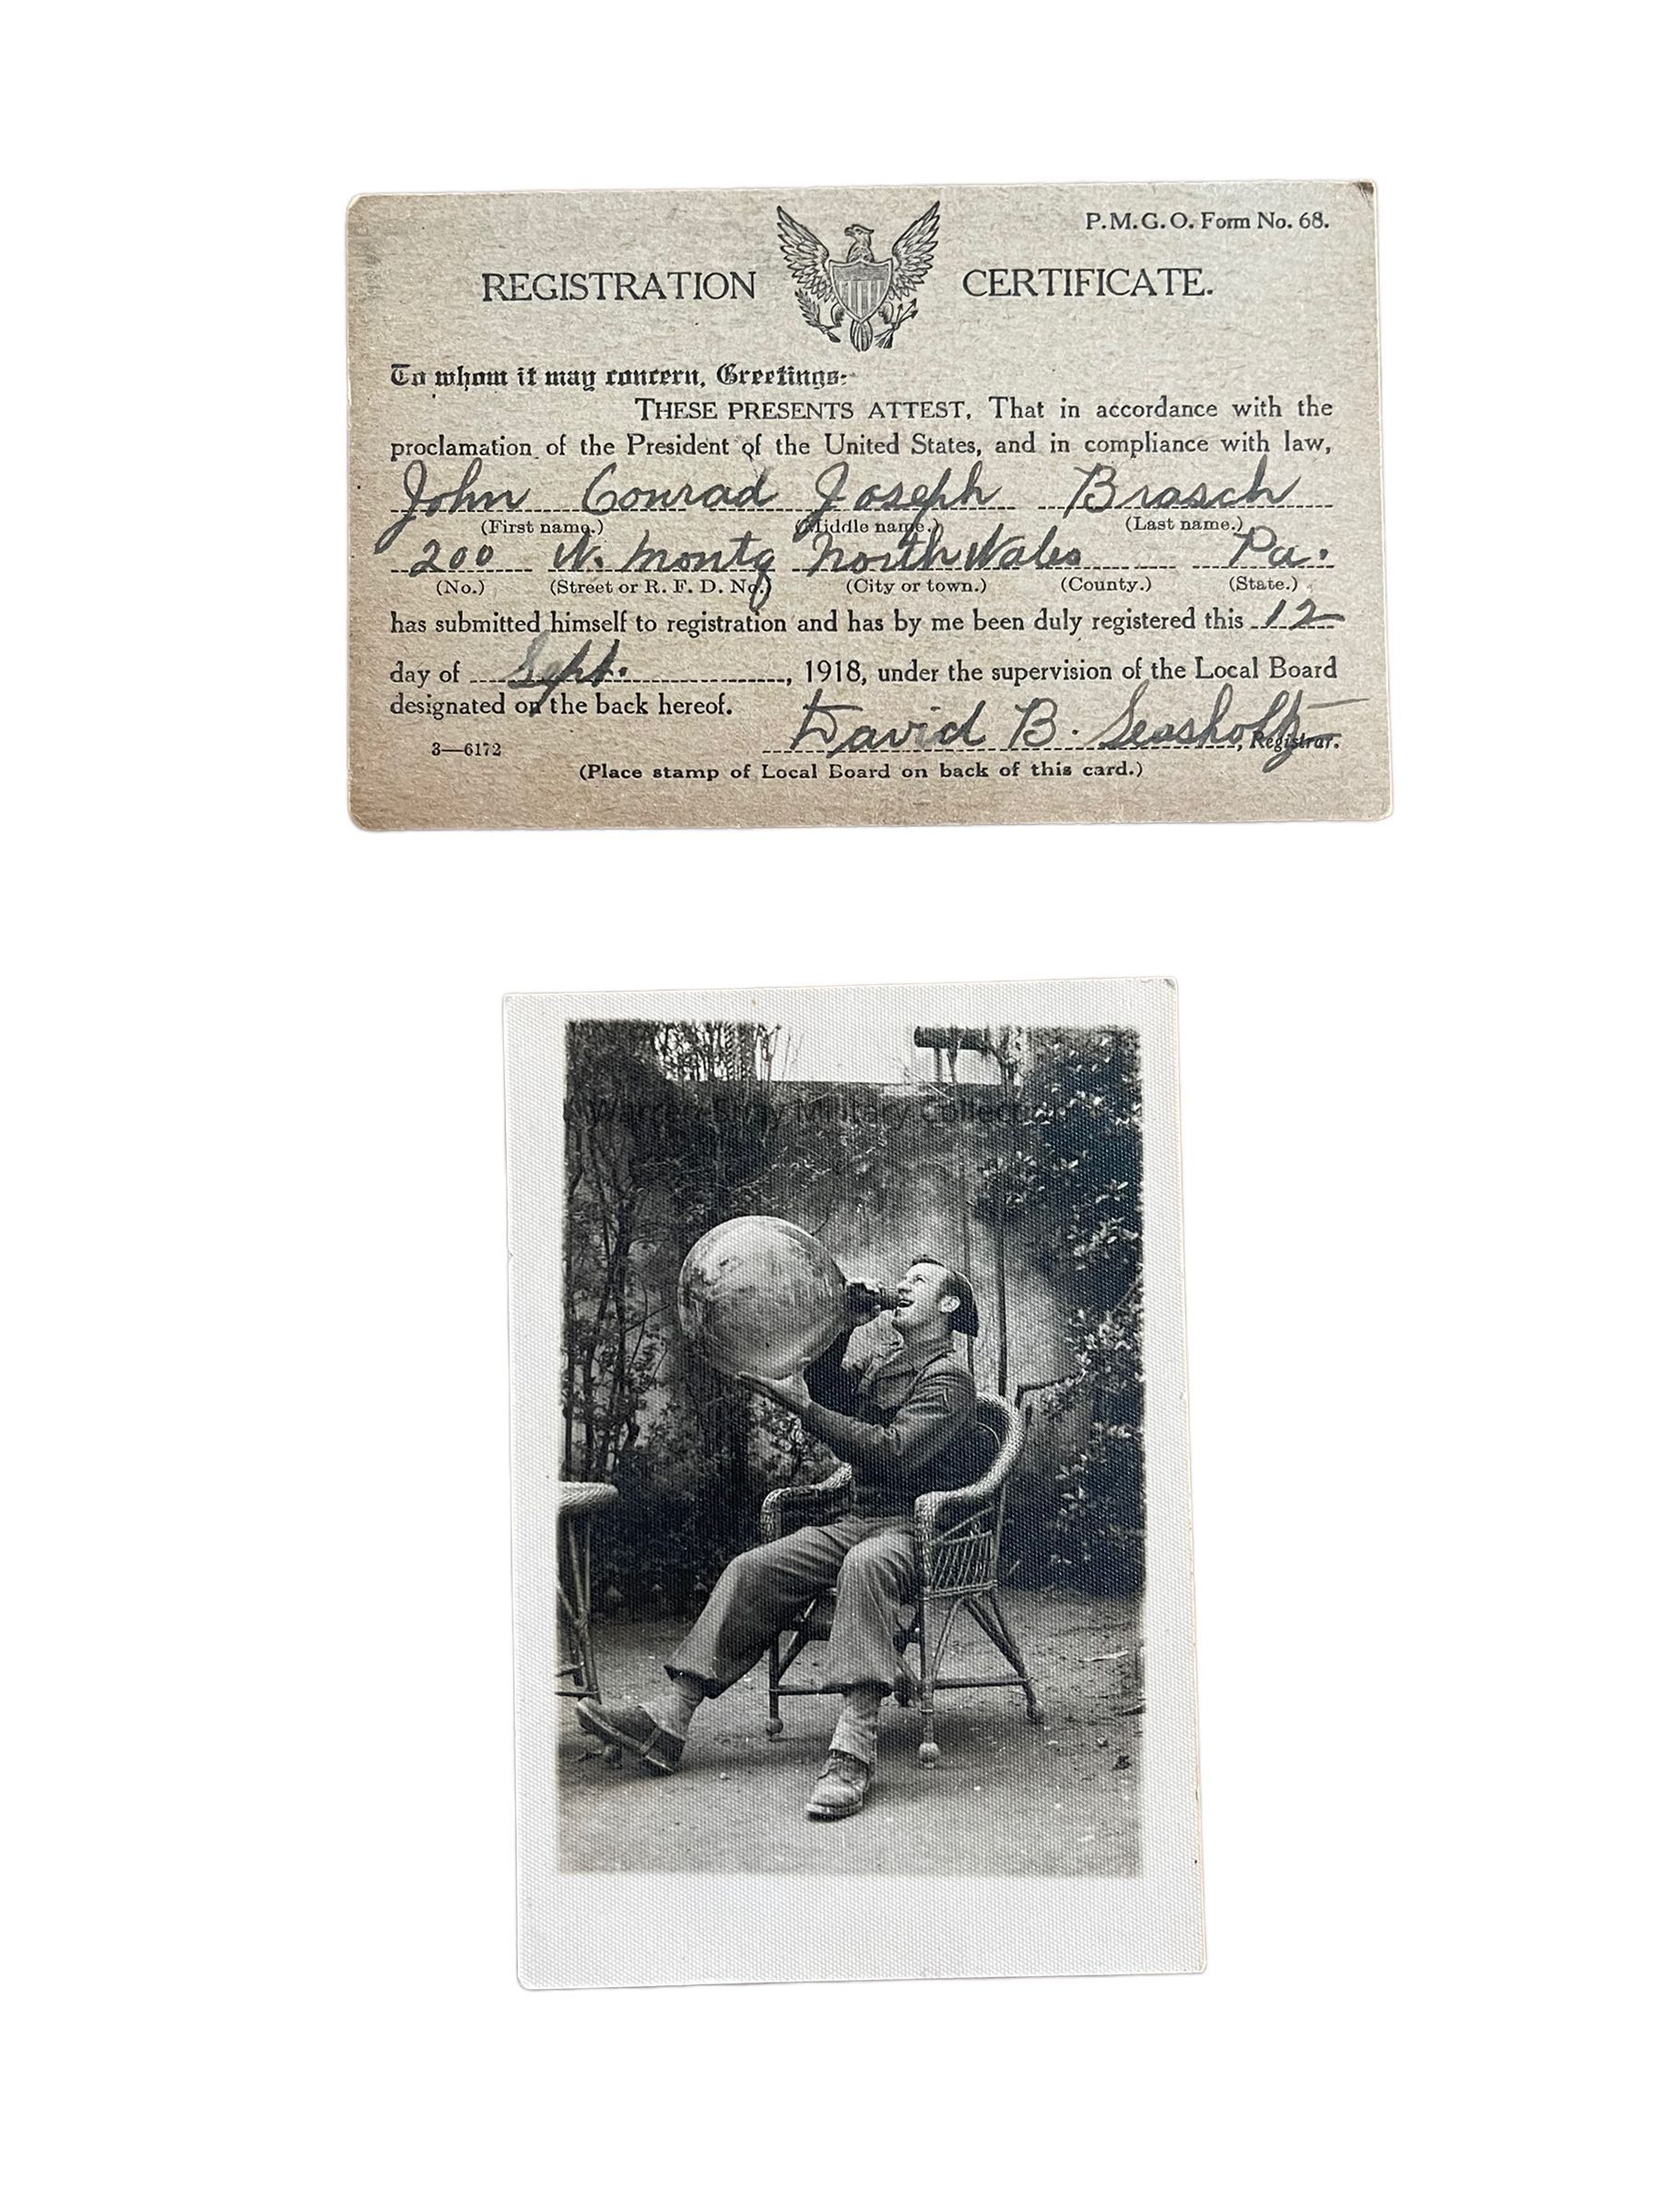 P.M.G.O. Form No. 68.
REGISTRATION CERTIFICATE.
To whom it may concern, Greetings:
THESE PRESENTS ATTEST, That in accordance with the
proclamation of the President of the United States, and in compliance with law,
John Conrad Joseph Brasch
(First name.) (Middle name.) (Last name.)
200 W. Montg North Wales Pa.
(No.) (Street or R. F. D. No.) (City or town.) (County.) (State.)
has submitted himself to registration and has by me been duly registered this 12
day of Sept., 1918, under the supervision of the Local Board
designated on the back hereof.
David B. Seasholtz, Registrar.
3—6172
(Place stamp of Local Board on back of this card.)
Military Collection